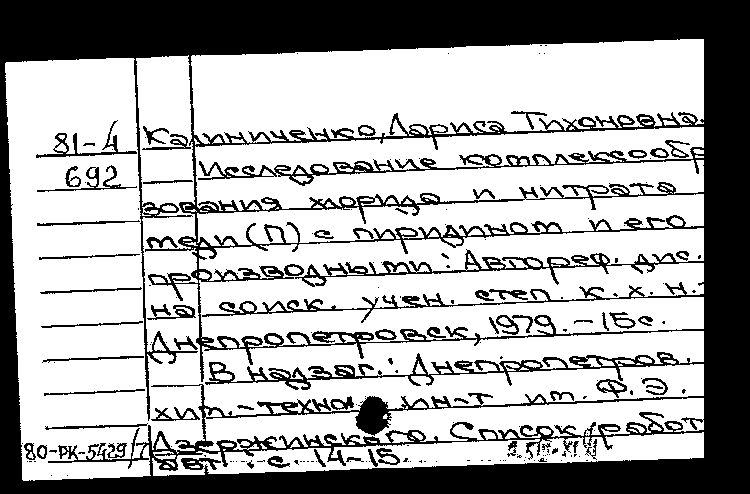 81-4 Калиниченко, Лариса Тихоновна.
692 Исследование комплексообр
зования хлорида и нитрата
меди (П) с пиридином и его
производными: Автореф. дис.
на соиск. учен. степ. к. х. н.-
Днепропетровск, 1979. - 15с.
В надзаг.: Днепропетров.
хим.-техно ин-т им. Ф. Э.
Дзержинского. Список работ
80-РК-5429
авт.: с. 14-15.